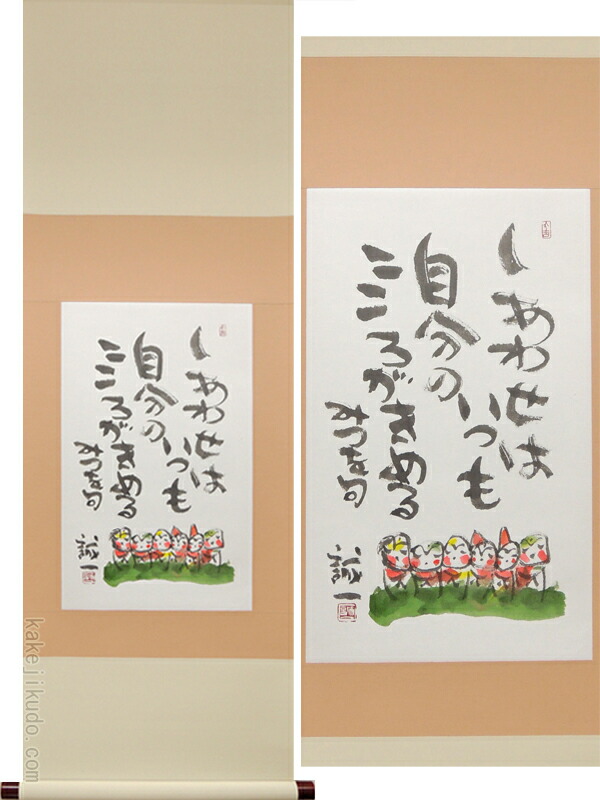 しあわせは
いつも
自分の
こころがきめる
みつを句
誠一
kakejikudo.com
しあわせは
いつも
自分の
こころがきめる
みつを句
誠一